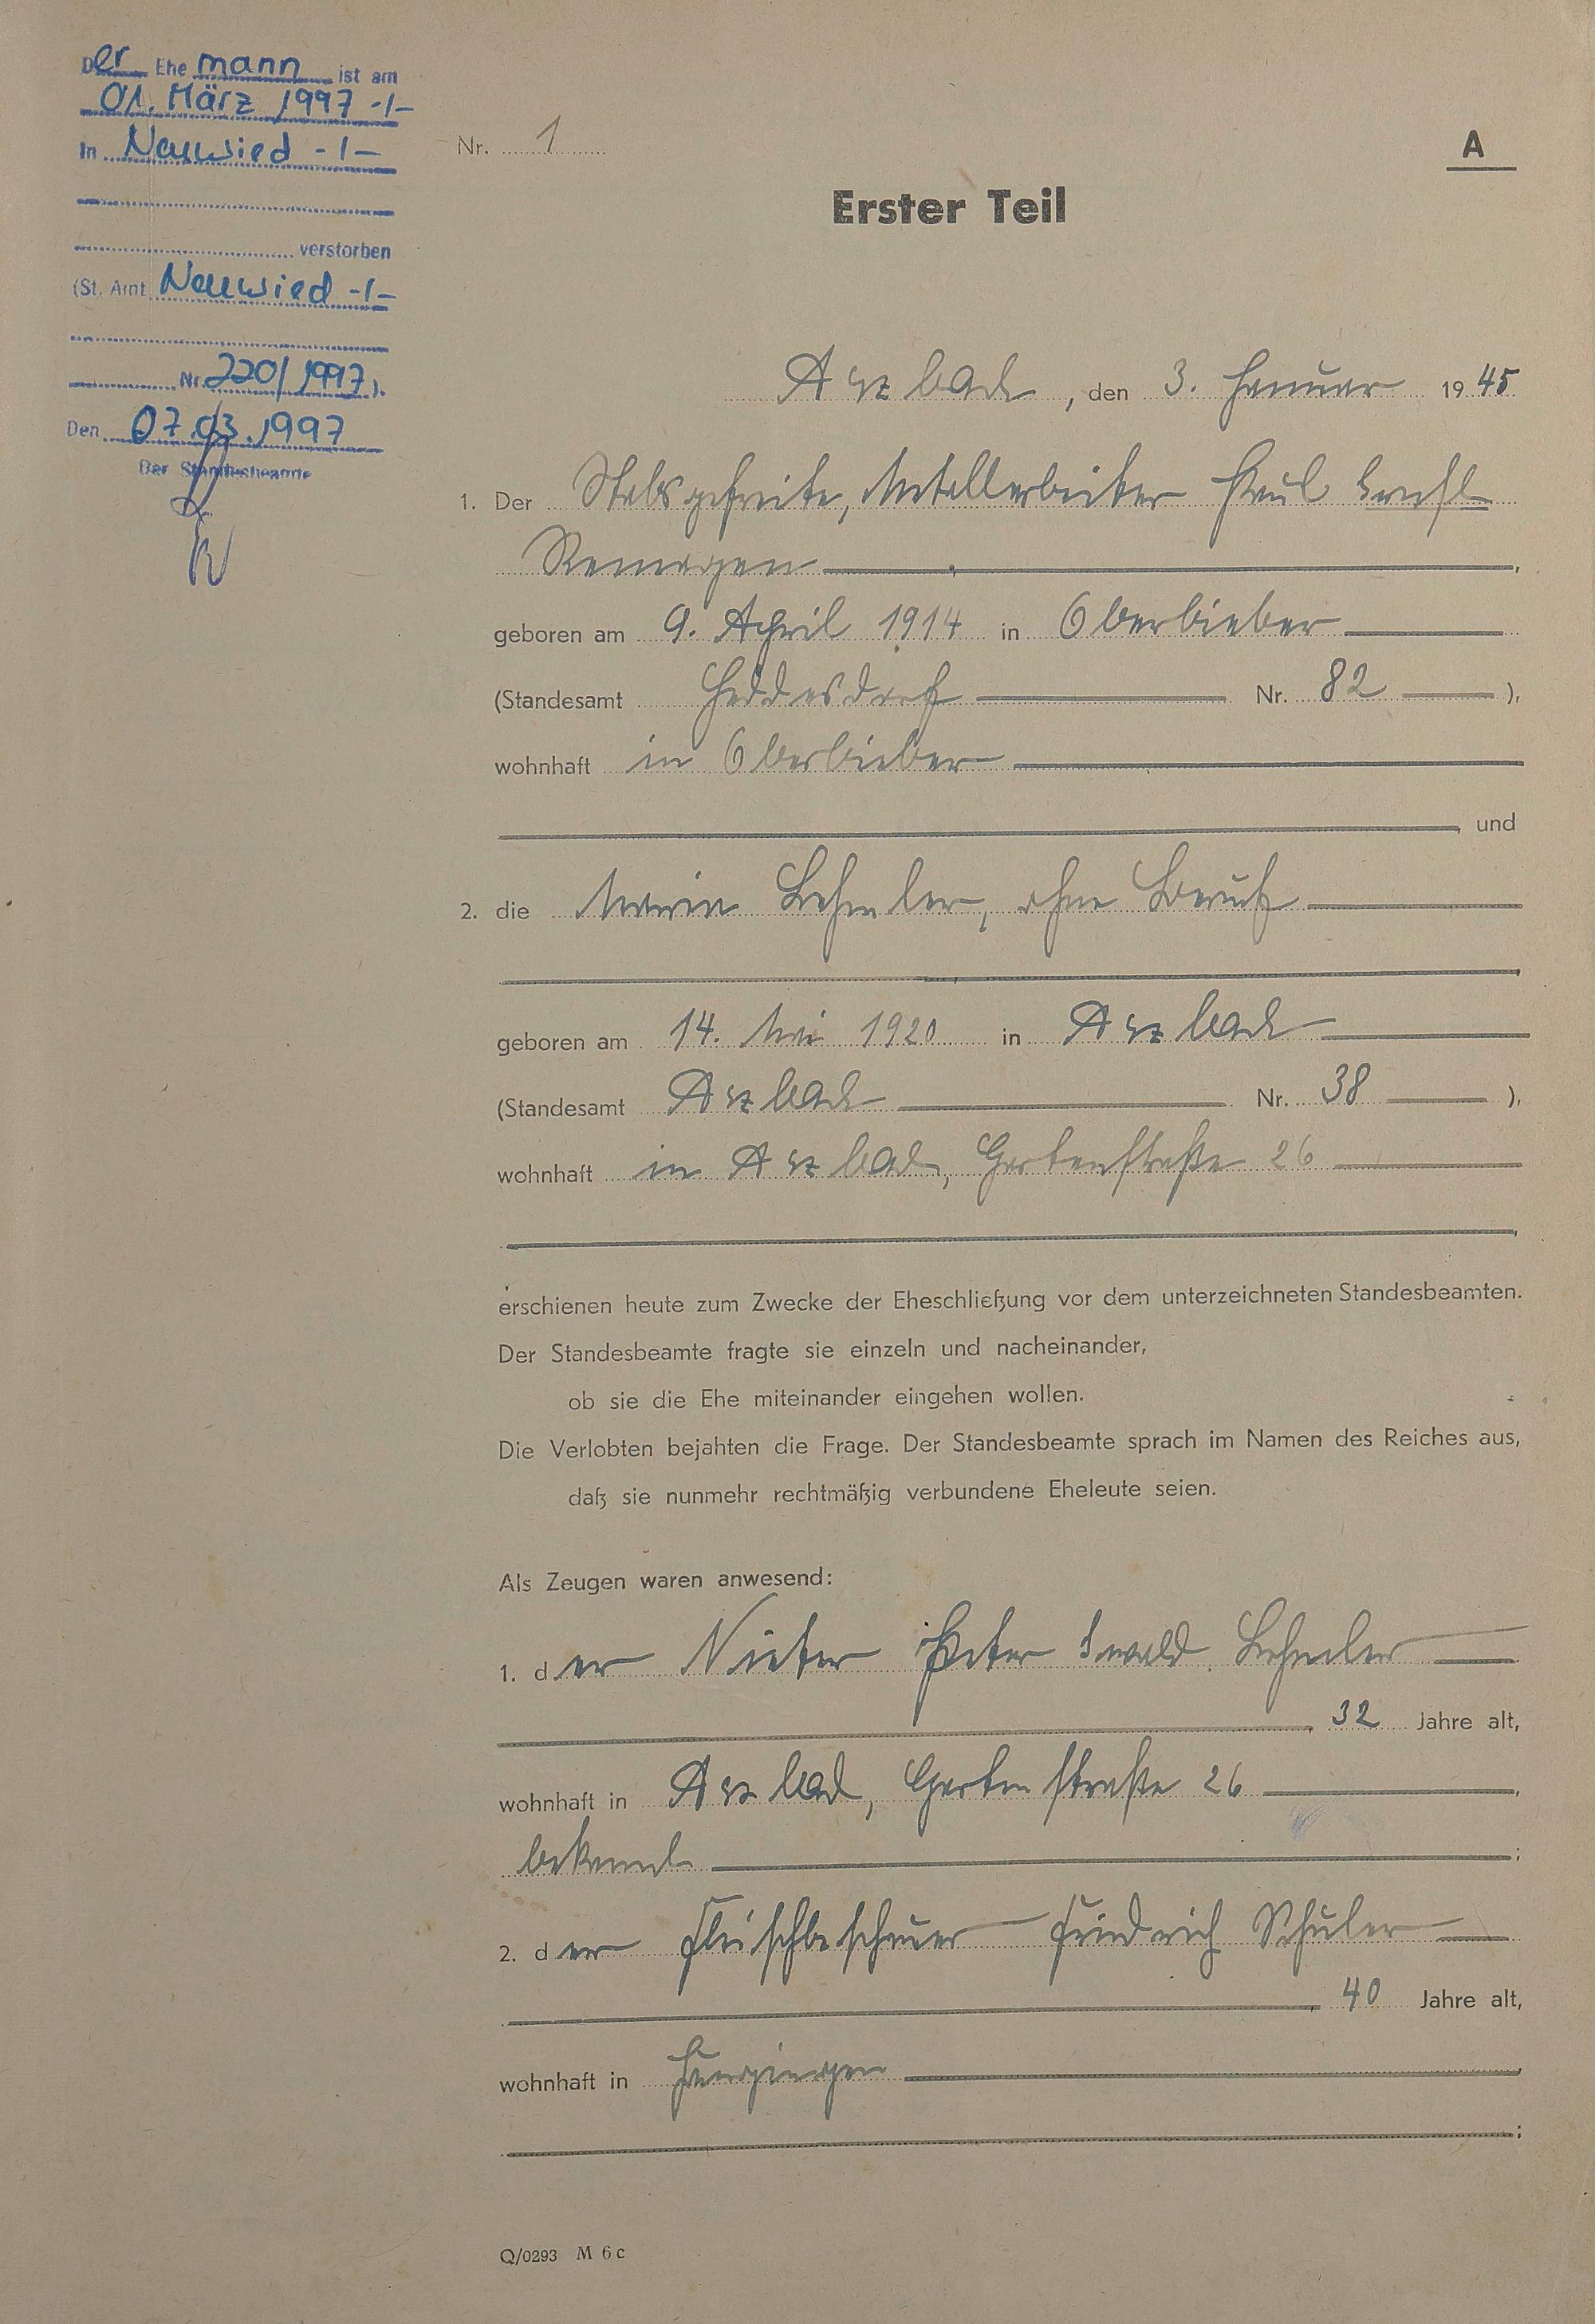 Der Ehe mann ist am
01. März 1997 -/-
In Neuwied -/-
verstorben
(St. Amt Neuwied -/-
Nr. 220/1997).
Den 07.03.1997
Der Standesbeamte
Nr. 1
A
Erster Teil
Arzbach, den 3. Januar 1945
1. Der Stabsgefreite, Metallarbeiter Paul Ernst
Remagen,
geboren am 9. April 1914 in Oberbieber
(Standesamt Heddesdorf Nr. 82 ),
wohnhaft in Oberbieber
, und
2. die Maria Lehmler, ohne Beruf
geboren am 14. Mai 1920 in Arzbach
(Standesamt Arzbach Nr. 38 ),
wohnhaft in Arzbach, Gartenstraße 26
,
erschienen heute zum Zwecke der Eheschließung vor dem unterzeichneten Standesbeamten.
Der Standesbeamte fragte sie einzeln und nacheinander,
ob sie die Ehe miteinander eingehen wollen.
Die Verlobten bejahten die Frage. Der Standesbeamte sprach im Namen des Reiches aus,
daß sie nunmehr rechtmäßig verbundene Eheleute seien.
Als Zeugen waren anwesend:
1. der Nieter Peter Ewald Lehmler
, 32 Jahre alt,
wohnhaft in Arzbach, Gartenstraße 26,
bekannt;
2. der Fleischbeschauer Friedrich Schuler
, 40 Jahre alt,
wohnhaft in
;
Q/0293 M 6 c